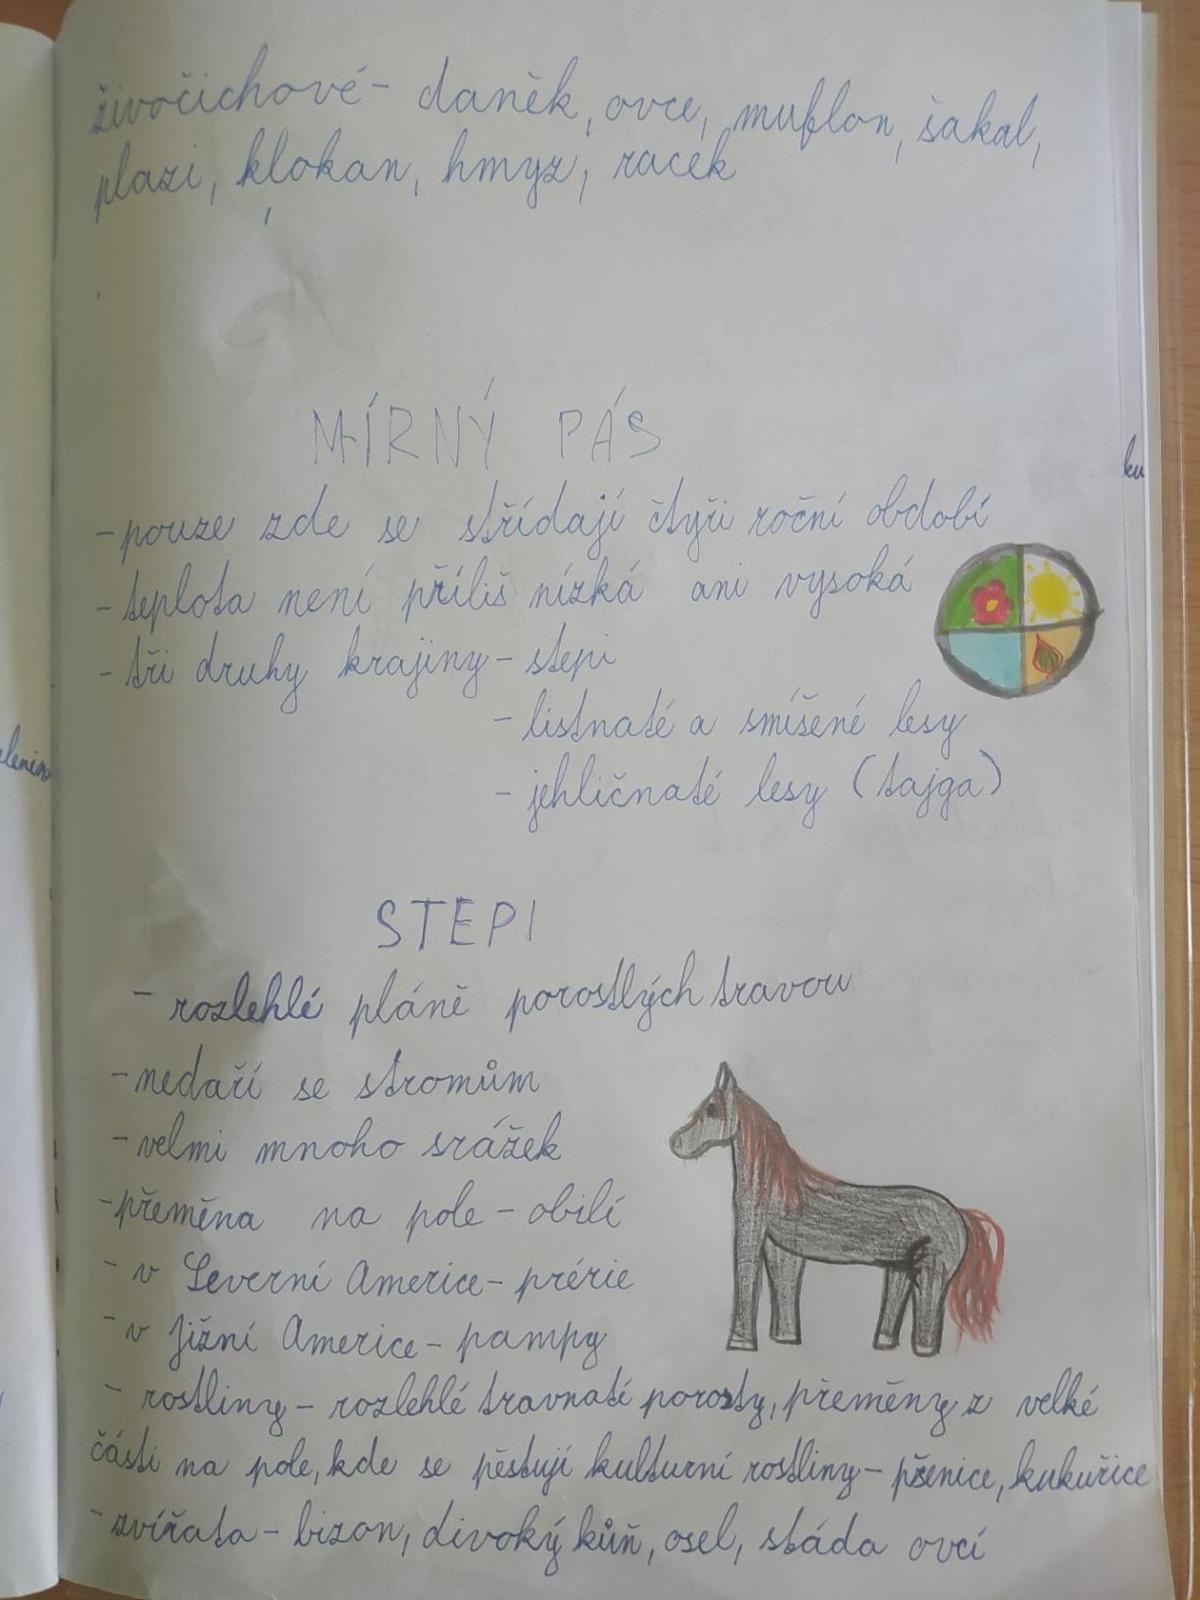 živočichové - daněk, ovce, muflon, šakal,
plazi, klokan, hmyz, racek
MÍRNÝ PÁS
ku
- pouze zde se střídají čtyři roční období
- teplota není příliš nízká ani vysoká
- tři druhy krajiny - stepi
- listnaté a smíšené lesy
- jehličnaté lesy (tajga)
STEPI
- rozlehlé pláně porostlých travou
- nedaří se stromům
- velmi mnoho srážek
- přeměna na pole - obilí
- v Severní Americe - prérie
- v Jižní Americe - pampy
- rostliny - rozlehlé travnaté porosty, přeměny z velké
části na pole, kde se pěstují kulturní rostliny - pšenice, kukuřice
- zvířata - bizon, divoký kůň, osel, stáda ovcí